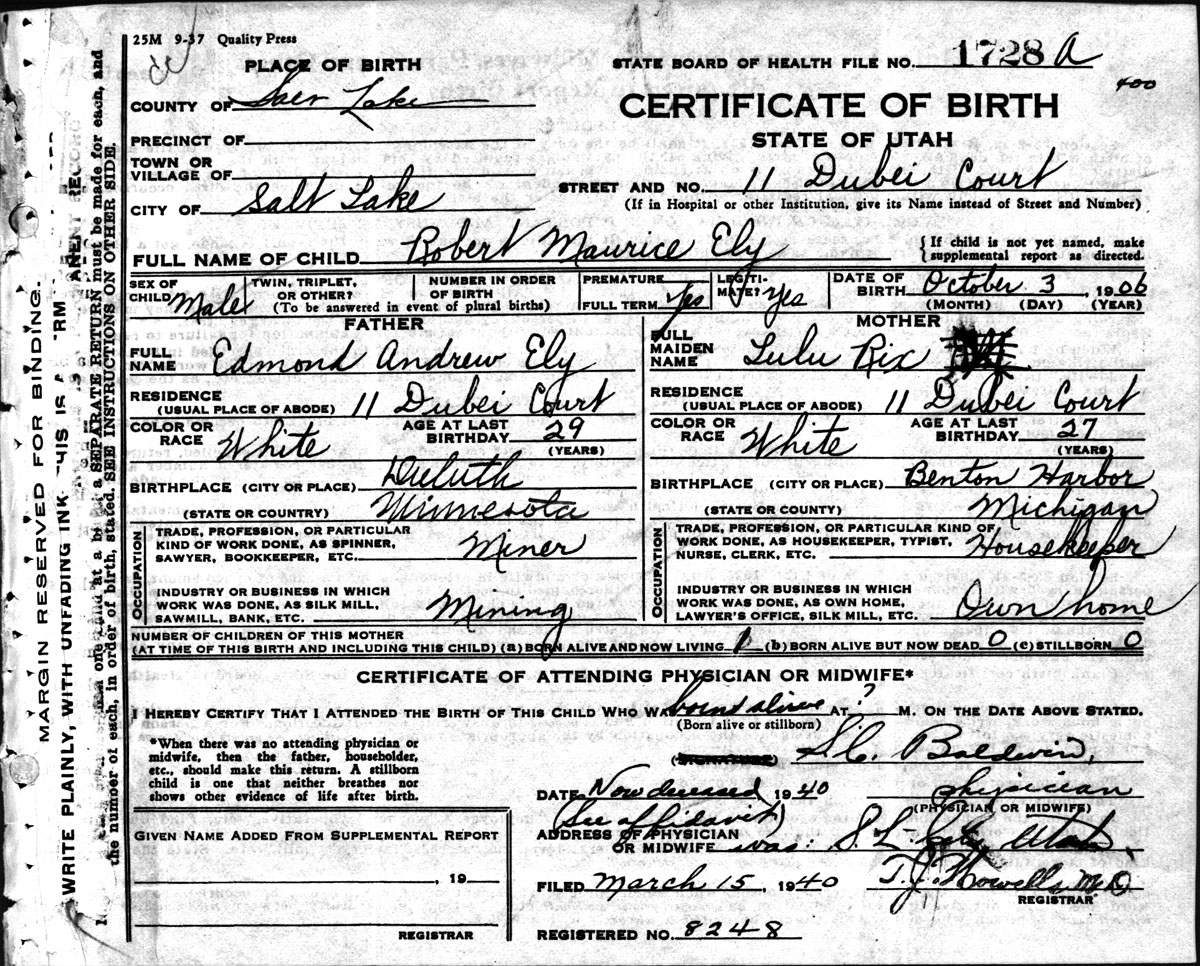 25M 9-37 Quality Press
PLACE OF BIRTH
STATE BOARD OF HEALTH FILE NO. 1728 A
400
COUNTY OF Salt Lake
CERTIFICATE OF BIRTH
PRECINCT OF
STATE OF UTAH
TOWN OR
VILLAGE OF
STREET AND NO. 11 Dubei Court
(If in Hospital or other Institution, give its Name instead of Street and Number)
CITY OF Salt Lake
FULL NAME OF CHILD Robert Maurice Ely
{If child is not yet named, make
supplemental report as directed.
SEX OF
CHILD Male
TWIN, TRIPLET,
OR OTHER?
NUMBER IN ORDER
OF BIRTH
(To be answered in event of plural births)
PREMATURE
FULL TERM Yes
LEGITI-
MATE? Yes
DATE OF
BIRTH October 3, 1906
(MONTH) (DAY) (YEAR)
FATHER
FULL
NAME Edmond Andrew Ely
RESIDENCE
(USUAL PLACE OF ABODE) 11 Dubei Court
COLOR OR
RACE White
AGE AT LAST
BIRTHDAY 29
(YEARS)
BIRTHPLACE (CITY OR PLACE) Duluth
(STATE OR COUNTRY) Minnesota
OCCUPATION
TRADE, PROFESSION, OR PARTICULAR
KIND OF WORK DONE, AS SPINNER,
SAWYER, BOOKKEEPER, ETC. Miner
INDUSTRY OR BUSINESS IN WHICH
WORK WAS DONE, AS SILK MILL,
SAWMILL, BANK, ETC. Mining
MOTHER
FULL
MAIDEN
NAME Lulu Rix
RESIDENCE
(USUAL PLACE OF ABODE) 11 Dubei Court
COLOR OR
RACE White
AGE AT LAST
BIRTHDAY 27
(YEARS)
BIRTHPLACE (CITY OR PLACE) Benton Harbor
(STATE OR COUNTY) Michigan
OCCUPATION
TRADE, PROFESSION, OR PARTICULAR KIND OF
WORK DONE, AS HOUSEKEEPER, TYPIST,
NURSE, CLERK, ETC. Housekeeper
INDUSTRY OR BUSINESS IN WHICH
WORK WAS DONE, AS OWN HOME,
LAWYER'S OFFICE, SILK MILL, ETC. Own home
NUMBER OF CHILDREN OF THIS MOTHER
(AT TIME OF THIS BIRTH AND INCLUDING THIS CHILD) (a) BORN ALIVE AND NOW LIVING 1 (b) BORN ALIVE BUT NOW DEAD 0 (c) STILLBORN 0
CERTIFICATE OF ATTENDING PHYSICIAN OR MIDWIFE*
I HEREBY CERTIFY THAT I ATTENDED THE BIRTH OF THIS CHILD WHO WAS born alive AT ? M. ON THE DATE ABOVE STATED.
(Born alive or stillborn)
*When there was no attending physician or
midwife, then the father, householder,
etc., should make this return. A stillborn
child is one that neither breathes nor
shows other evidence of life after birth.
(SIGNATURE) S.C. Baldwin,
DATE Now deceased 1940 Physician
(PHYSICIAN OR MIDWIFE)
(See affidavit)
ADDRESS OF PHYSICIAN
OR MIDWIFE was: S. L. City, Utah
FILED March 15, 1940 T.J. Howells M.D.
REGISTRAR
REGISTERED NO. 8248
GIVEN NAME ADDED FROM SUPPLEMENTAL REPORT
, 19
REGISTRAR
MARGIN RESERVED FOR BINDING.
WRITE PLAINLY, WITH UNFADING INK
SEPARATE RETURN must be made for each, and
the number of each, in order of birth, stated. SEE INSTRUCTIONS ON OTHER SIDE.